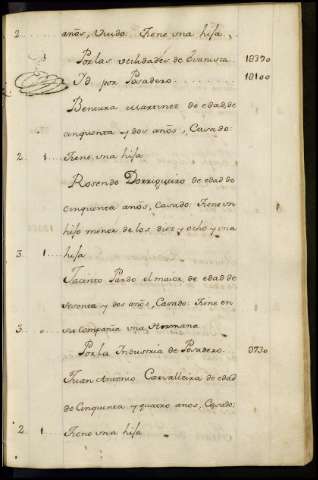 2 años, Viudo: Tiene una hija.
Por las utilidades de Tavernera 183 70
Id. por Posadero 181 00
Ventura Martinez de edad, de
cinquenta y dos años, Casado:
2 1 tiene, una hija
Rosendo Dorrigueiro de edad de
cinquenta años, Casado: tiene un
hijo menor de los diez y ocho y una
3 1 hija
Jacinto Pardo el maior, de edad de
sesenta y dos años, Casado: tiene en
3 su compañia una Hermana
Por la Industria de Posadero 8730
Juan Antonio Carvalleira de edad
de Cinquenta y quatro años, Casado:
2 1 tiene una hija